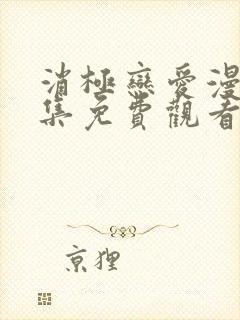 消極戀愛漫
集免費觀看
京狸